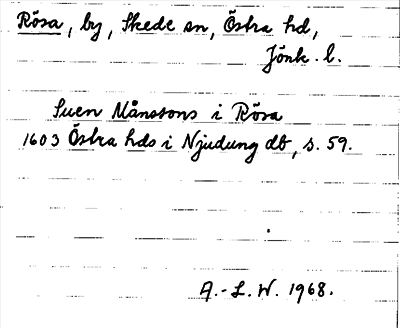 Rösa, by, Skede sn, Östra hd,
Jönk. l.
Suen Månssons i Rösa
1603 Östra hds i Njudung db, s. 59.
A.-L. W. 1968.